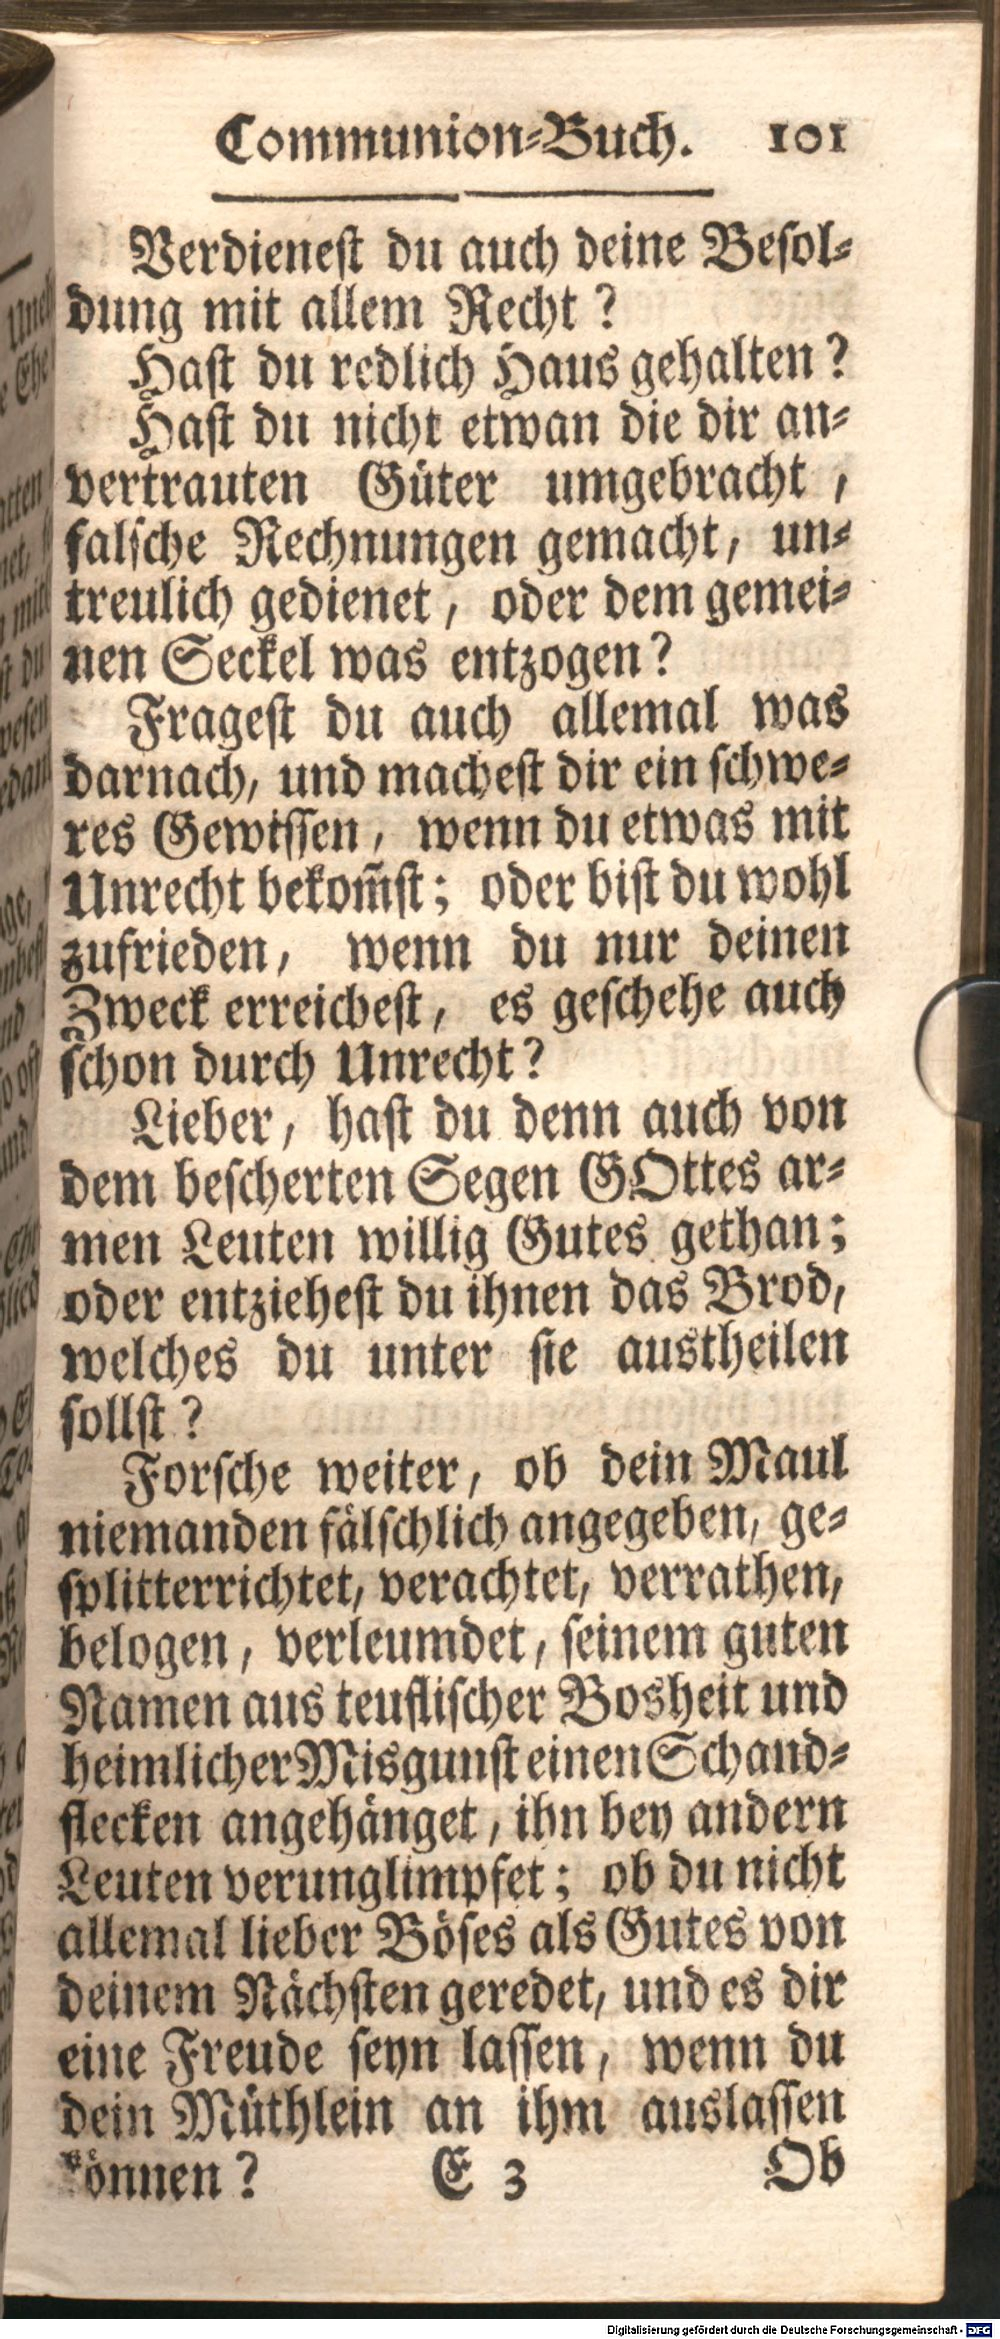 Communion-Buch. 101
Verdienest du auch deine Besol-
dung mit allem Recht?
Hast du redlich Haus gehalten?
Hast du nicht etwan die dir an-
vertrauten Güter umgebracht,
falsche Rechnungen gemacht, un-
treulich gedienet, oder dem gemei-
nen Seckel was entzogen?
Fragest du auch allemal was
darnach, und machest dir ein schwe-
res Gewissen, wenn du etwas mit
Unrecht bekom̃st; oder bist du wohl
zufrieden, wenn du nur deinen
Zweck erreichest, es geschehe auch
schon durch Unrecht?
Lieber, hast du denn auch von
dem bescherten Segen GOttes ar-
men Leuten willig Gutes gethan;
oder entziehest du ihnen das Brod,
welches du unter sie austheilen
sollst?
Forsche weiter, ob dein Maul
niemanden fälschlich angegeben, ge-
splitterrichtet, verachtet, verrathen,
belogen, verleumdet, seinem guten
Namen aus teuflischer Bosheit und
heimlicher Misgunst einen Schand-
flecken angehänget, ihn bey andern
Leuten verunglimpfet; ob du nicht
allemal lieber Böses als Gutes von
deinem Nächsten geredet, und es dir
eine Freude seyn lassen, wenn du
dein Müthlein an ihm auslassen
können? E 3 Ob
Digitalisierung gefördert durch die Deutsche Forschungsgemeinschaft - DFG